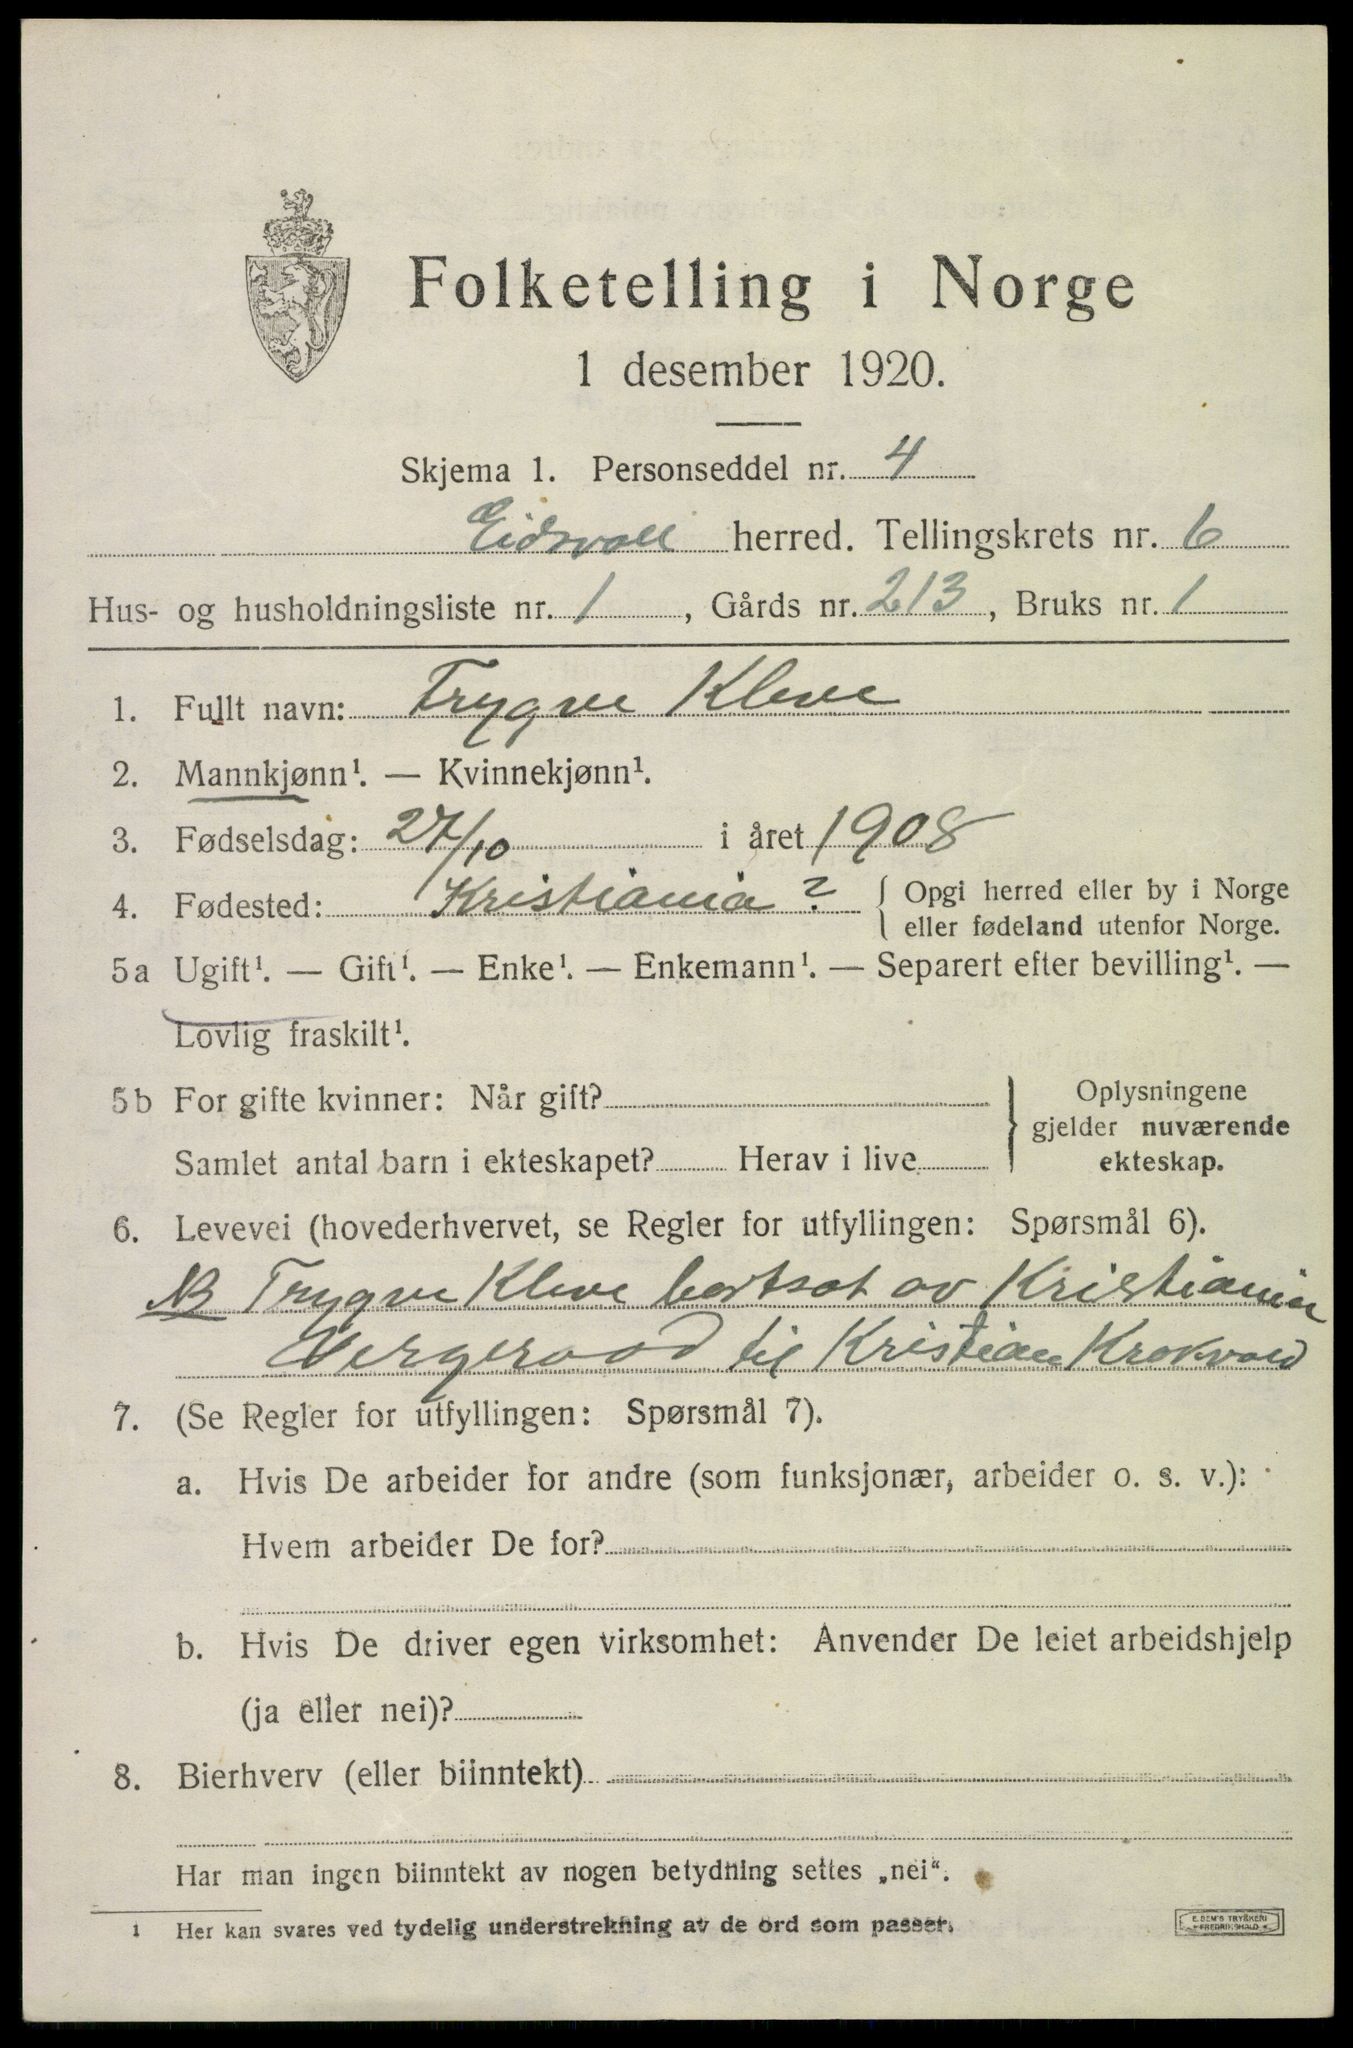 Folketelling i Norge
1 desember 1920.
Skjema 1. Personseddel nr. 4
Eidsvoll herred. Tellingskrets nr. 6
Hus- og husholdningsliste nr. 1, Gårds nr. 213, Bruks nr. 1
1. Fullt navn: Trygve Kleve
2. Mannkjønn¹. — Kvinnekjønn¹.
3. Fødselsdag: 27/10 i året 1908
4. Fødested: Kristiania? { Opgi herred eller by i Norge
eller fødeland utenfor Norge.
5a Ugift¹. — Gift¹. — Enke¹. — Enkemann¹. — Separert efter bevilling¹. —
Lovlig fraskilt¹.
5b For gifte kvinner: Når gift?
Samlet antal barn i ekteskapet? Herav i live
} Oplysningene
gjelder nuværende
ekteskap.
6. Levevei (hovederhvervet, se Regler for utfyllingen: Spørsmål 6).
NB Trygve Kleve bortsat av Kristiania
Vergeraad til Kristian Krokvold
7. (Se Regler for utfyllingen: Spørsmål 7).
a. Hvis De arbeider for andre (som funksjonær, arbeider o. s. v.):
Hvem arbeider De for?
b. Hvis De driver egen virksomhet: Anvender De leiet arbeidshjelp
(ja eller nei)?
8. Bierhverv (eller biinntekt)
Har man ingen biinntekt av nogen betydning settes „nei“.
1 Her kan svares ved tydelig understrekning av de ord som passer.
E. SEM'S TRYKKERI
FREDRIKSHALD